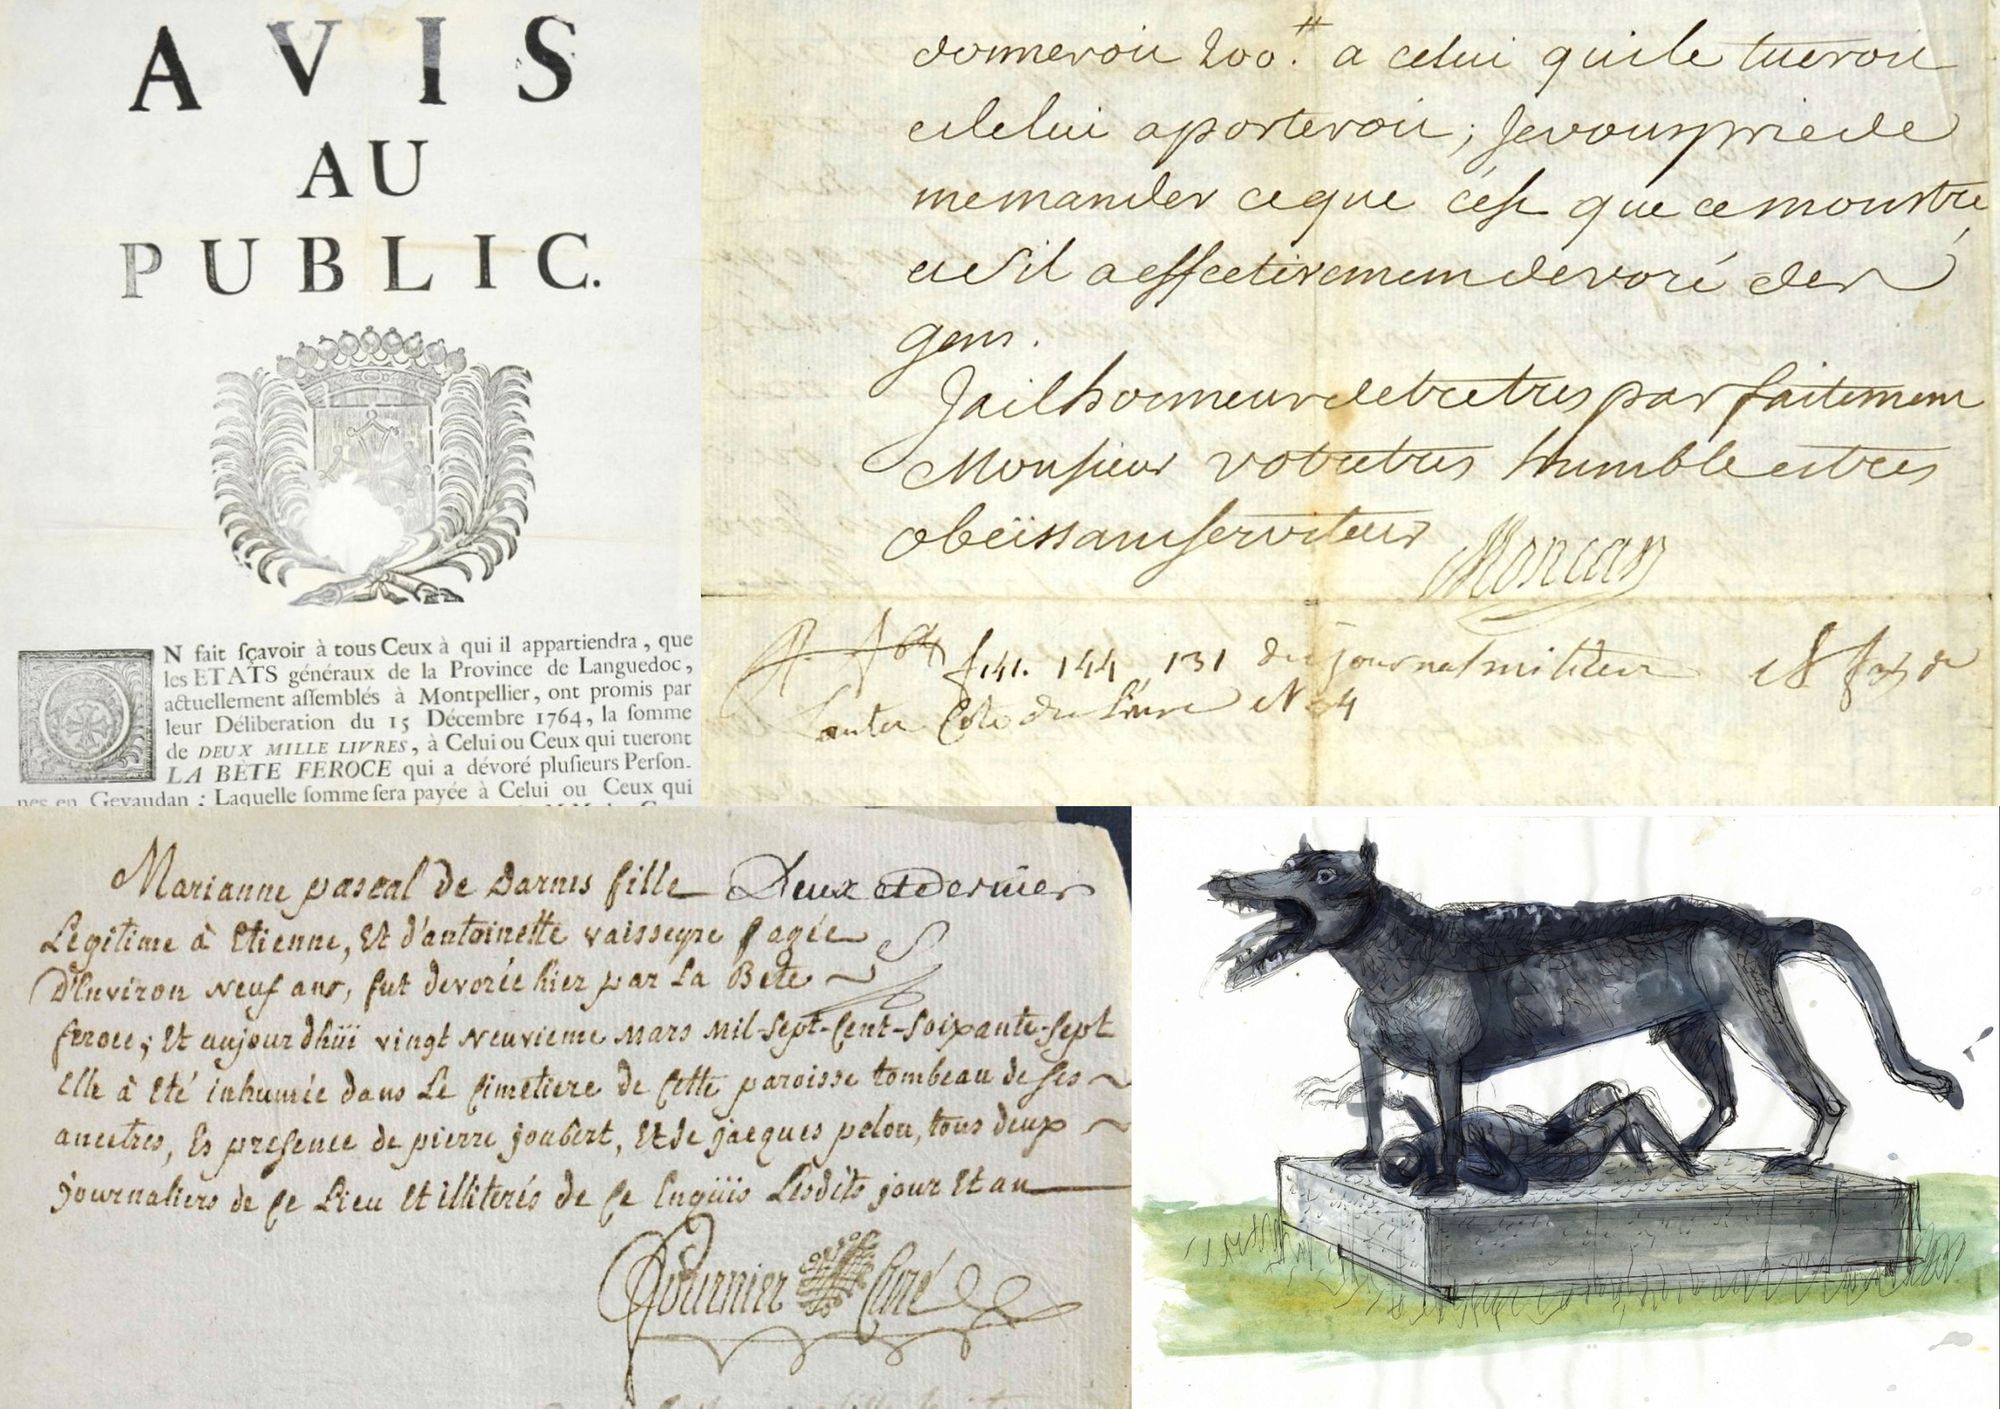 AVIS
AU
PUBLIC.
N fait sçavoir à tous Ceux à qui il appartiendra, que
les ETATS généraux de la Province de Languedoc,
actuellement assemblés à Montpellier, ont promis par
leur Déliberation du 15 Décembre 1764, la somme
de DEUX MILLE LIVRES, à Celui ou Ceux qui tueront
LA BÈTE FEROCE qui a dévoré plusieurs Person-
nes en Gevaudan : Laquelle somme sera payée à Celui ou Ceux qui
donneroit 200.# a celui qui le tueroit
et le lui aporteroit; Je vous prie de
me mander ce que c'est que ce monstre,
et s'il a effectivement devoré des
gens.
J'ai l'honneur detre tres parfaitement
Monsieur votre tres humble et tres
obeïssant serviteur Moncan
f. 141. 144, 131 du journal militaire
Marianne pascal de Darnis fille Deux et dernier
Legitime à Etienne, Et d'antoinette vaisseyre agée
D'Environ neuf ans, fut devorée hier par La Bete
feroce; Et aujourdhüi vingt neuvieme mars mil-sept-Cent-soixante-sept
Elle à Eté inhumée dans Le Cimetiere de Cette paroisse tombeau de ses
ancetres, Es presence de pierre joubert, Et de jacques pelou, tous deux
journaliers de Ce Lieu Et illiterés de Ce Enqüis Lesdits jour Et an
Fournier Curé